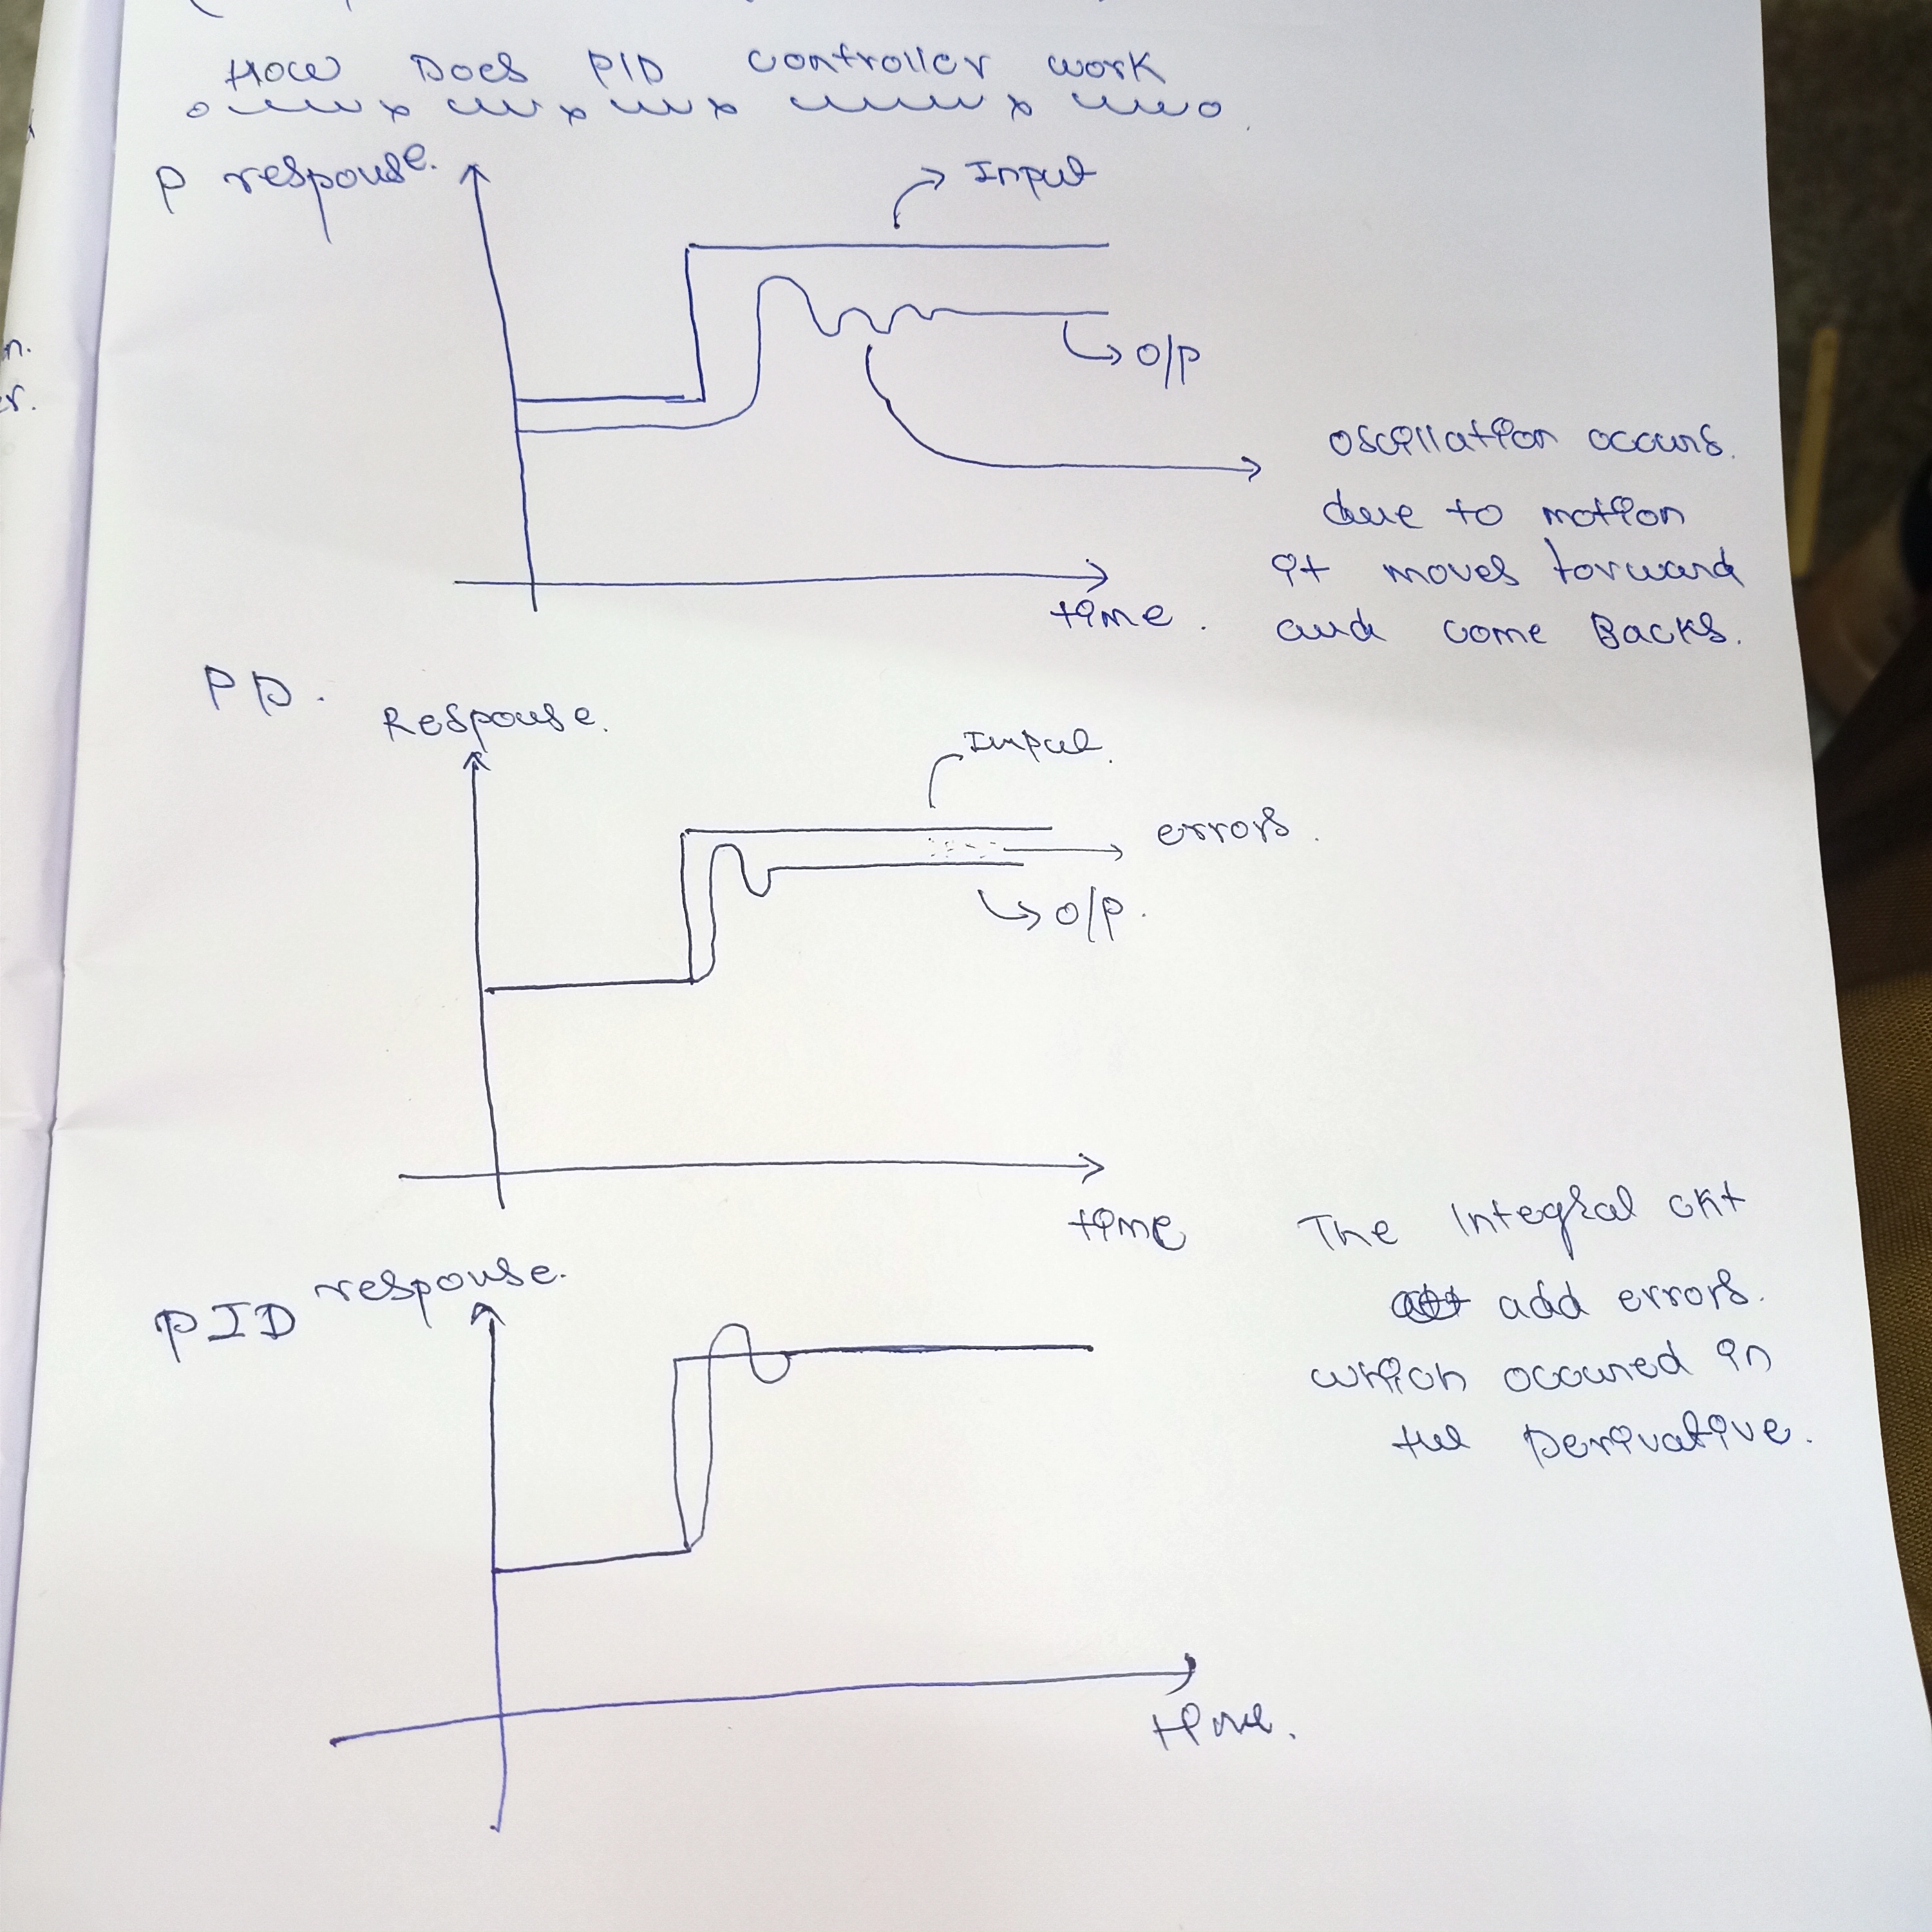 How Does PID controller work
P response.
Input
O/P
oscillation occurs.
due to motion
it moves forward
and come Backs.
time.
PD.
Response.
Input.
errors.
O/P.
time
The Integral ckt
add errors.
which occured in
the Derivative.
PID response.
time.
n.
er.